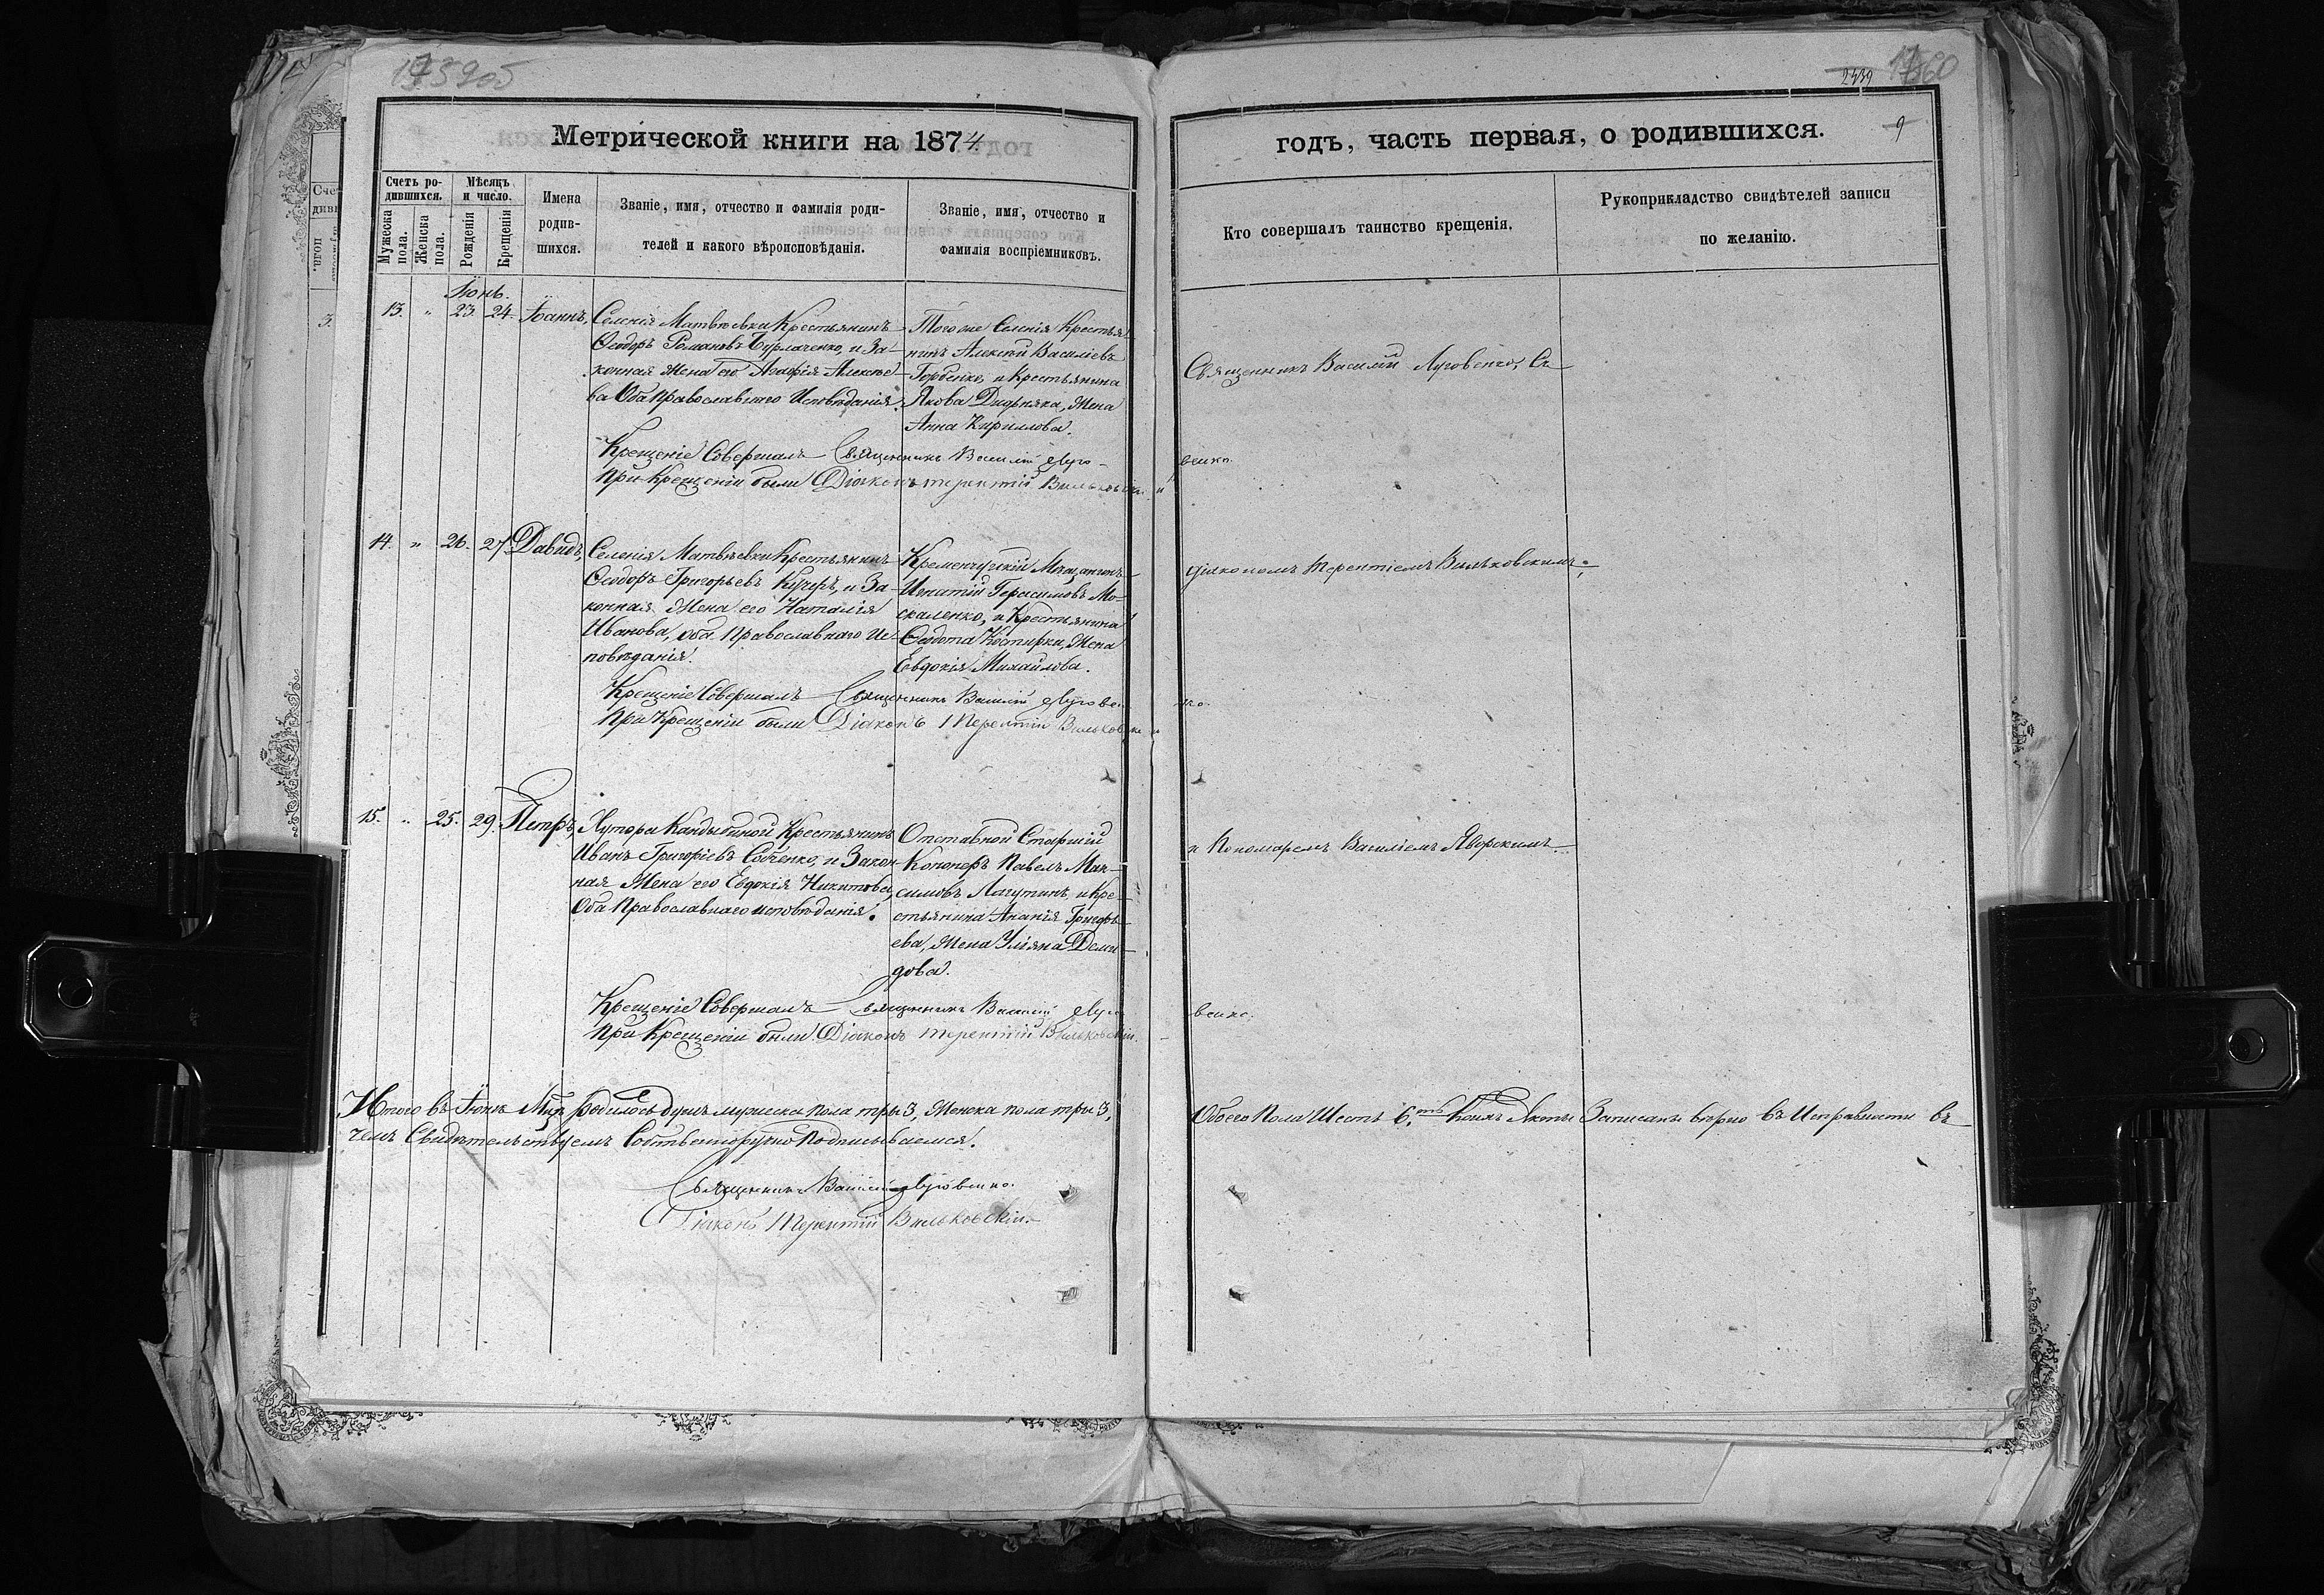 Метрической книги на 1874
годъ, часть первая, о родившихся.
9
2439
Счетъ ро-
дившихся.
Мѣсяцъ
и число.
Мужеска
пола.
Женска
пола.
Рожденія
Крещенія
Имена
родив-
шихся.
Званіе, имя, отчество и фамилія роди-
телей и какого вѣроисповѣданія.
Званіе, имя, отчество и
фамилія воспріемниковъ.
Кто совершалъ таинство крещенія.
Рукоприкладство свидѣтелей записи
по желанію.
Іюнь.
13. " 23. 24. Іоаннъ,
Селенія Матвѣевки Крестьянинъ
Ѳеодоръ Романовъ Бурлаченко, и За-
конная Жена его Агафія Алексѣе-
ва Оба Православнаго Исповѣданія.
Того же Селенія Крестья-
нинъ Алексѣй Василіевъ
Горбенко, и Крестьянина
Якова Жена
Анна Кирилова.
Священникъ Василій Луговенко, Съ
Крещеніе Совершалъ Священникъ Василій Луго-
венко.
При Крещеніи были Діаконъ Терентій Вильковскій
14. " 26. 27. Давидъ,
Селенія Матвѣевки Крестьянинъ
Ѳеодоръ Григорьевъ Кучеръ, и За-
конная Жена его Наталія
Иванова, оба Православнаго Ис-
повѣданія.
Кременчугскій Мещанинъ
Игнатій Герасимовъ Мо-
скаленко, и Крестьянина
Ѳеодота Костырки, Жена
Евдокія Михайлова.
діякономъ Терентіемъ Вильковскимъ;
Крещеніе Совершалъ Священникъ Василій Луговен
ко.
При Крещеніи были Діаконъ Терентій Вильковскій
15. " 25. 29. Петръ,
Хутора Кандыбиной Крестьянинъ
Иванъ Григоріевъ Собченко, и Закон
ная Жена его Евдокія Никитова,
Оба Православнаго исповѣданія.
Отставной Старшій
Канонеръ Павелъ Мак-
симовъ Лагутинъ, и Кре-
стьянина Ананія Григорь-
ева, Жена Уліяна Деми-
дова.
и Пономаремъ Василіемъ Яворскимъ.
Крещеніе Совершалъ Священникъ Василій Луго
венко.
При Крещеніи были Діаконъ Терентій Вильковскій.
Итого въ Іюнѣ М-цѣ родилось душъ мужеска пола три 3, Женска пола три 3,
Обоего Пола Шесть 6. Коихъ Акты Записаны вѣрно въ Исправности въ
чемъ Свидѣтельствуемъ Собственноручно Подписываемся.
Священникъ Василій Луговенко.
Діаконъ Терентій Вильковскій.